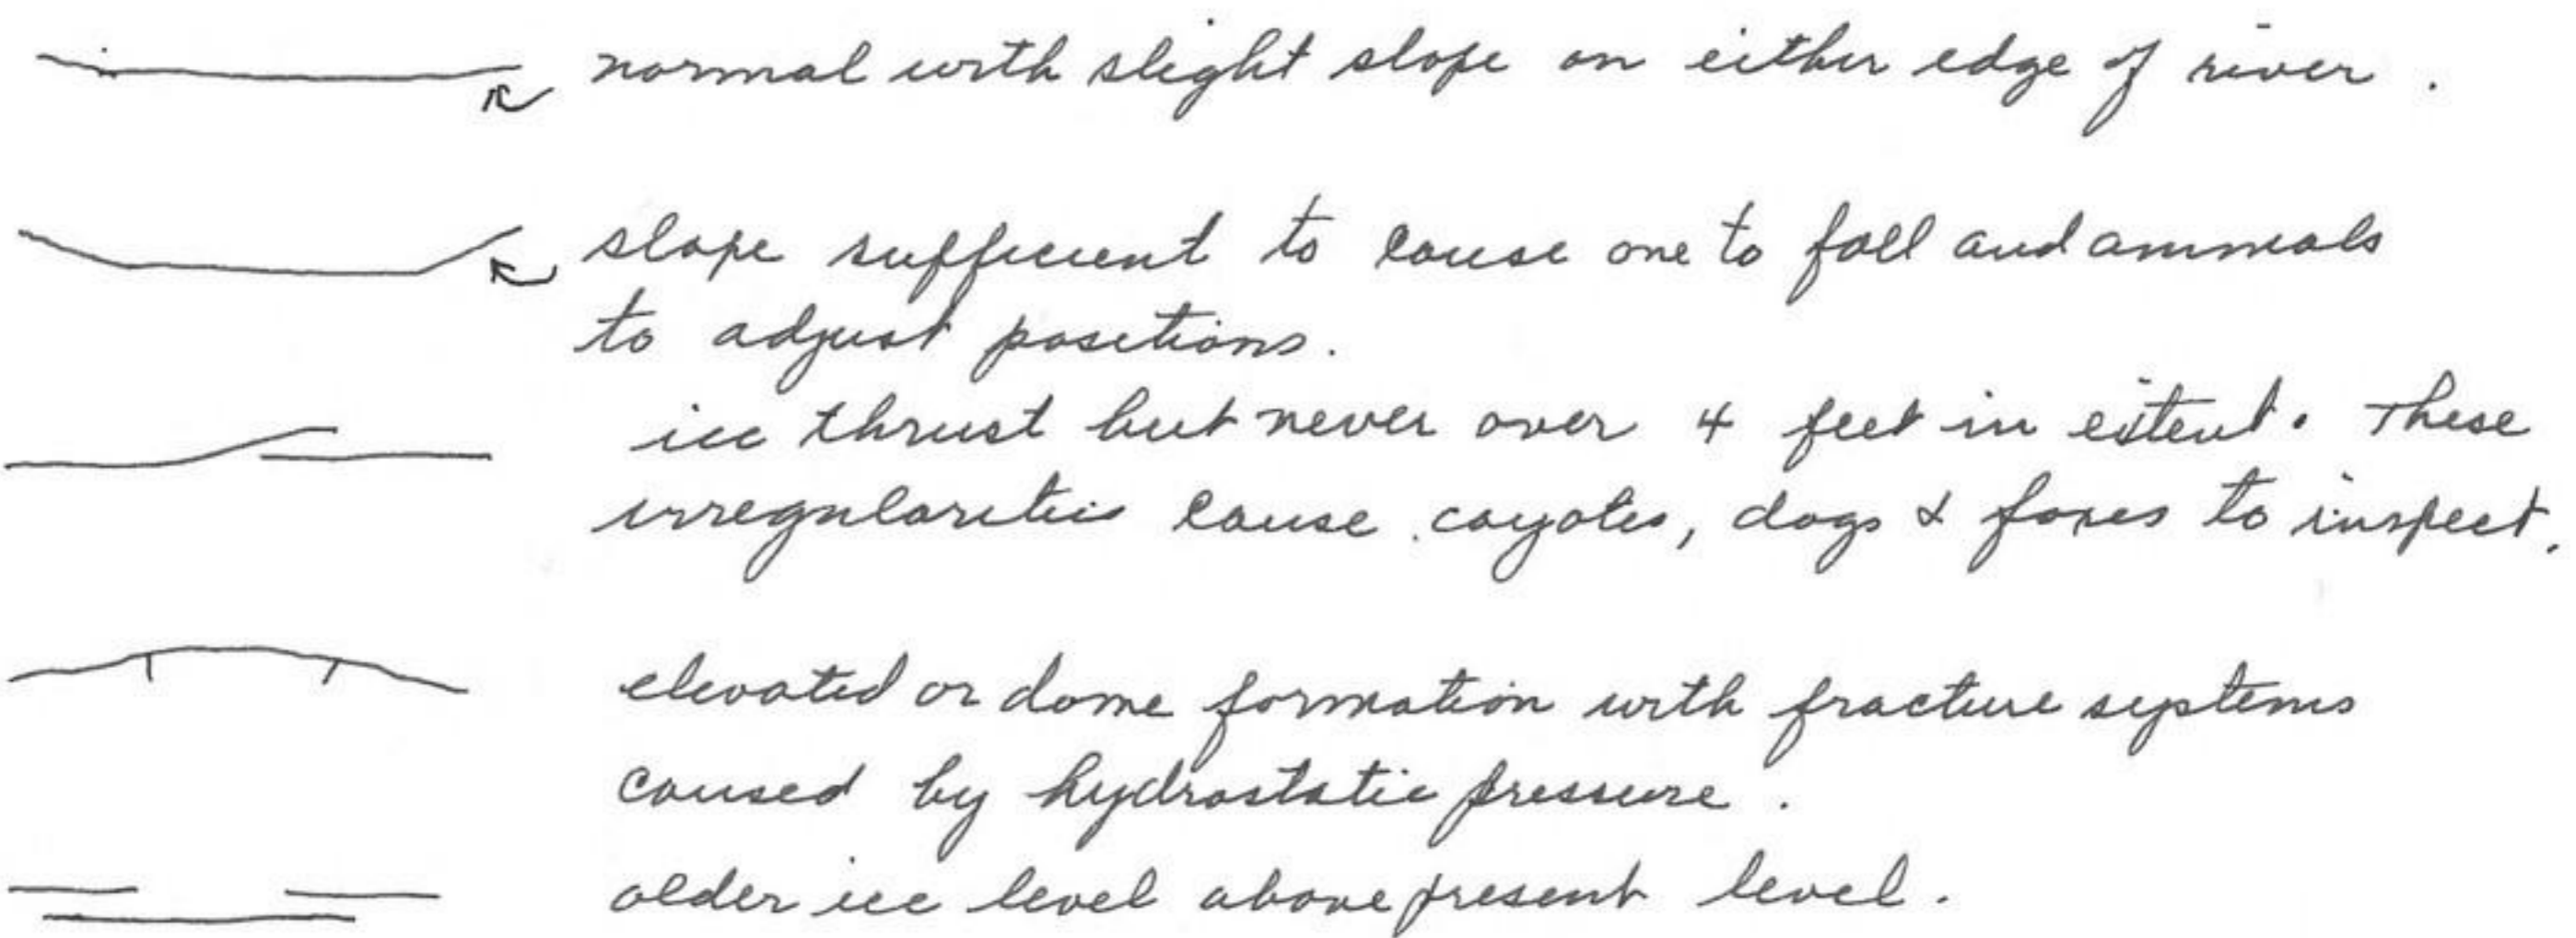 normal with slight slope on either edge of river.
slope sufficient to cause one to fall and animals
to adjust positions.
ice thrust but never over 4 feet in extent. These
irregularities cause coyotes, dogs & foxes to inspect.
elevated or dome formation with fracture systems
caused by hydrostatic pressure.
older ice level above present level.